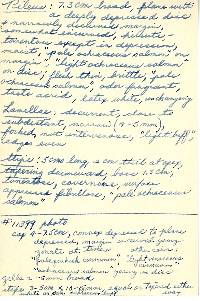 Pileus: 7.5 cm broad, plano with
a deeply depressed disc
& narrowly incurved margin,
somewhat incurved, hirsute-
tomentose except in depression,
moist, "pale ochraceous salmon" on
margin "light ochraceous salmon"
on disc; flesh thin, brittle, "pale
ochraceous salmon", odor fragrant,
taste acrid, latex white, unchanging
Lamellae: decurrent, close to
subdistant, narrow (4-5 mm),
forked, not intervenose, "light buff",
edge even
Stipe: 5 cm long, 2 cm thick at apex,
tapering downward, base 1.5 cm,
cavernous, surface
appressed fibrillose, "pale ochraceous
salmon"
#11399 photo
cap 4-7.5 cm, convex depressed to plane
depressed, margin
"ochraceous salmon" going in disc
gills 2-4 mm broad
stipe 10-15 mm, equal or tapered either
way